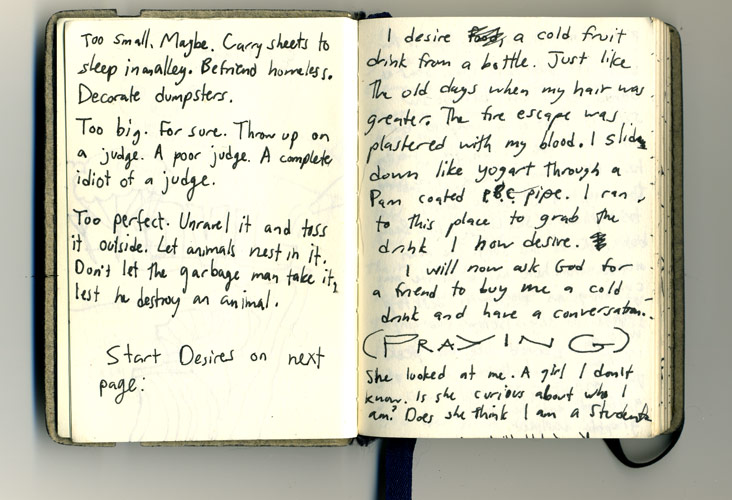 Too small. Maybe. Carry sheets to
sleep in an alley. Befriend homeless.
Decorate dumpsters.
Too big. For sure. Throw up on
a judge. A poor judge. A complete
idiot of a judge.
Too perfect. Unravel it and toss
it outside. Let animals nest in it.
Don't let the garbage man take it,
lest he destroy an animal.
Start Desires on next
page:
I desire a cold fruit
drink from a bottle. Just like
the old days when my hair was
greater. The fire escape was
plastered with my blood. I slide
down like yogurt through a
Pam coated pipe. I ran
to this place to grab the
drink I now desire.
I will now ask God for
a friend to buy me a cold
drink and have a conversation.
(PRAYING)
She looked at me. A girl I don't
know. Is she curious about who I
am? Does she think I am a student